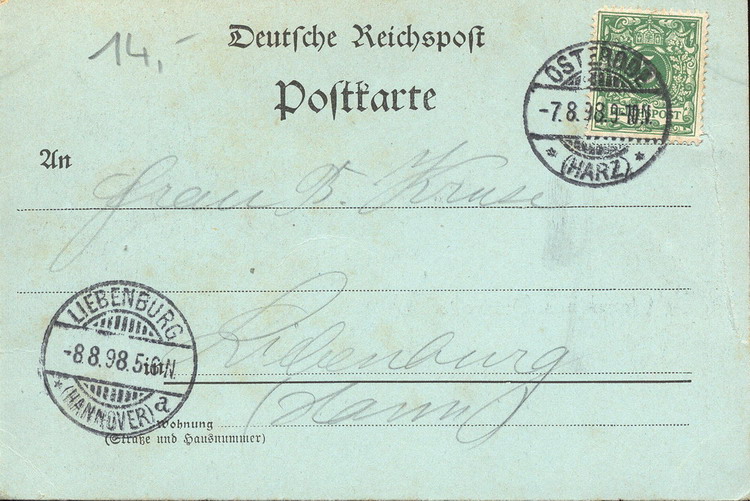 14,-
Deutsche Reichspost
Postkarte
OSTERODE
-7.8.98.9-10N.
(HARZ)
REICHSPOST
An
Frau B. Kruse
LIEBENBURG
-8.8.98.5-6N.
(HANNOVER) a
in
Liebenburg
(Hann)
Wohnung
(Straße und Hausnummer)